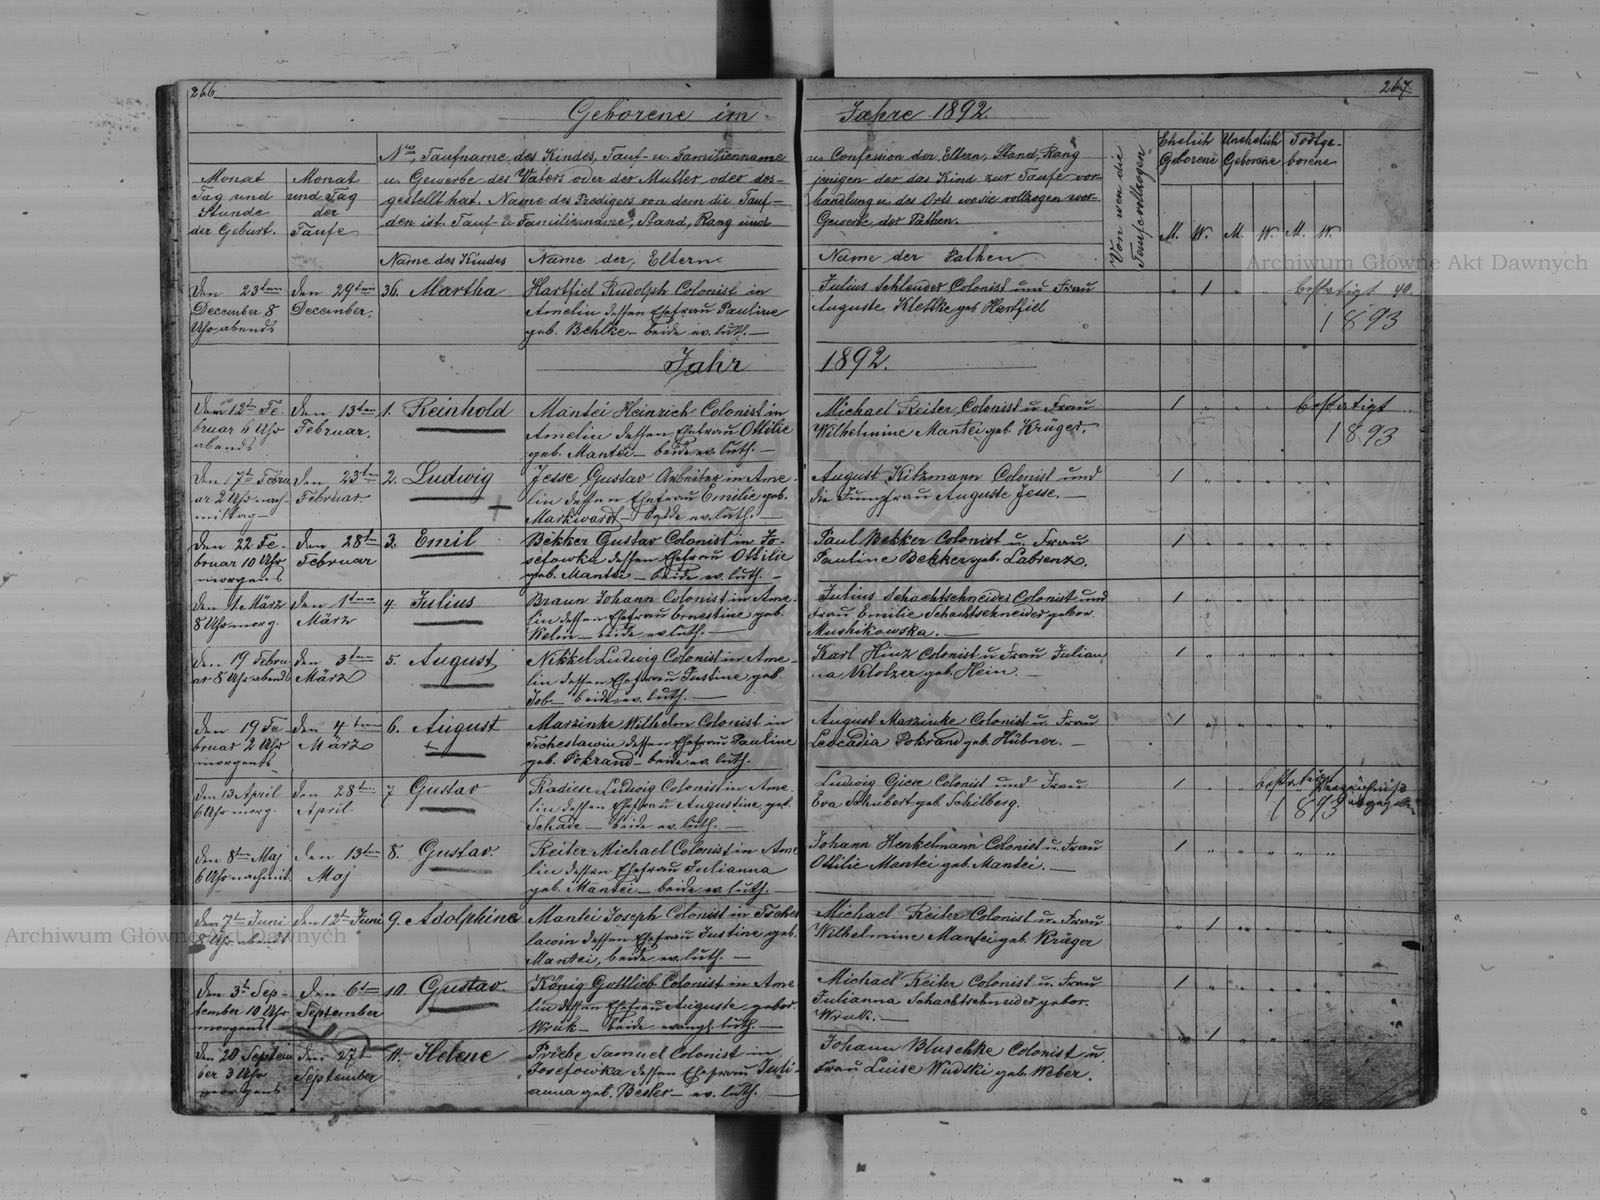 266
267
Geborene im Jahre 1892.
Monat Tag und Stunde der Geburt.
Monat und Tag der Taufe
No, Taufname des Kindes, Tauf- u. Familienname
u. Gewerbe des Vaters oder der Mutter oder des-
gestellt hat. Name des Predigers von dem die Tauf-
den ist. Tauf- u Familienname, Stand, Rang und
u. Confession der Eltern, Stand, Rang
jenigen der das Kind zur Taufe vor-
handlung u. des Orts wo sie vollzogen wor-
Gewerbe der Pathen.
Von wem die Taufe vollzogen
Ehelich Geborene
Unehelich Geborene
Todtge-borene
M. W. M. W. M. W.
Name des Kindes
Name der Eltern
Name der Pathen
Archiwum Główne Akt Dawnych
Den 23ten December 8 Uhr abends
den 29ten December.
36. Martha
Hartfiel Rudolph Colonist in
Amelin dessen Ehefrau Pauline
geb. Behlke – beide ev. luth. –
Julius Schlender Colonist und Frau
Auguste Klettke geb Hartfiel
1
1893
Jahr 1892.
Den 12ten Februar 6 Uhr abends
den 13ten Februar.
1. Reinhold
Mantei Heinrich Colonist in
Amelin dessen Ehefrau Ottilie
geb. Mantei – beide ev. luth. –
Michael Reiter Colonist u Frau
Wilhelmine Mantei geb. Krüger.
1
1893
Den 7ten Februar 2 Uhr nachmittag
den 23ten Februar
2. Ludwig
Jesse Gustav Arbeiter in Ame-
lin dessen Ehefrau Emilie geb.
Markwardt – beide ev. luth. –
August Kitzmann Colonist und
die Jungfrau Auguste Jesse. –
1
Den 22 Februar 10 Uhr morgens
den 28ten Februar
3. Emil
Bekker Gustav Colonist in Jo-
sefowka dessen Ehefrau Ottilie
geb. Mantei – beide ev. luth. –
Paul Bekker Colonist u. Frau
Pauline Bekker geb. Labrenz.
1
Den 1 März 8 Uhr morg.
den 1ten März
4. Julius
Braun Johann Colonist in Ame-
lin dessen Ehefrau Ernestine geb.
Kelm – beide ev. luth. –
Julius Schachtschneider Colonist und
Frau Emilie Schachtschneider gebor.
Mushikowska. –
1
Den 19 Februar 8 Uhr abends
den 3ten März
5. August
Nikkel Ludwig Colonist in Ame-
lin dessen Ehefrau Justine geb.
Job – beide ev. luth. –
Karl Hinz Colonist u Frau Julian
na geb. Hein. –
1
Den 19 Februar 2 Uhr morgens
den 4ten März
6. August
Marzinke Wilhelm Colonist in
Tscheslawin dessen Ehefrau Pauline
geb. Pokrand – beide ev. luth.
August Marzinke Colonist u. Frau
Leocadia Pokrand geb. Hübner. –
1
Den 13 April 6 Uhr morg.
den 28ten April
7 Gustav
Radies Ludwig Colonist in Ame-
lin dessen Ehefrau Augustine geb.
Schade – beide ev. luth. –
Ludwig Giese Colonist und Frau
Eva Schubert geb. Schilberg.
1
1893
Den 8ten Maj 6 Uhr nachmit.
den 13ten Maj
8. Gustav.
Reiter Michael Colonist in Ame
lin dessen Ehefrau Julianna
geb. Mantei – beide ev. luth. –
Johann Henkelmann Colonist u. Frau
Ottilie Mantei geb. Mantei. –
1
Den 7ten Juni 8 Uhr abends
den 12ten Juni
9. Adolphine
Mantei Joseph Colonist in Tsches
lawin dessen Ehefrau Justine geb.
Mantei, beide ev. luth. –
Michael Reiter Colonist u. Frau
Wilhelmine Mantei geb. Krüger
1
Archiwum Główne Akt Dawnych
Den 3ten September 10 Uhr morgens
den 6ten September
10. Gustav.
König Gottlieb Colonist in Ame
lin dessen Ehefrau Auguste gebor.
Wruk – beide evangl. luth. –
Michael Reiter Colonist u. Frau
Julianna Schachtschneider gebor.
Wruk. –
1
Den 20 September 3 Uhr morgens
den 27t September
11. Helene
Priebe Samuel Colonist in
Josefowka dessen Ehefrau Juli-
anna geb. Besler – ev. luth. –
Johann Bluschke Colonist u.
Frau Luise Wudtki geb. Weber.
1